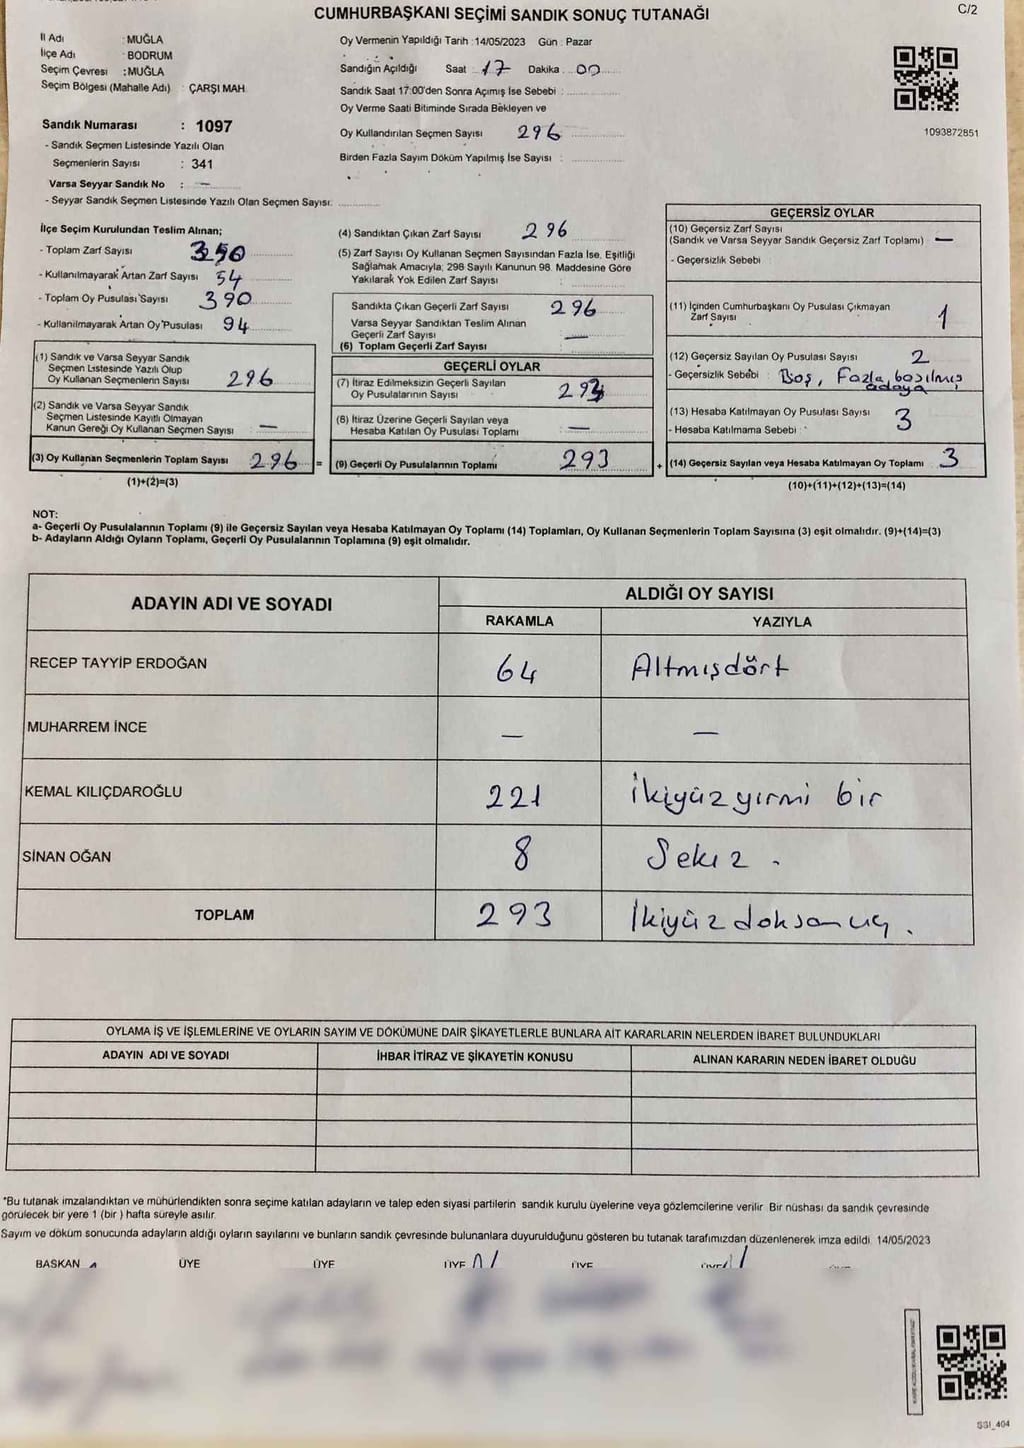 CUMHURBAŞKANI SEÇİMİ SANDIK SONUÇ TUTANAĞI
C/2
İl Adı : MUĞLA
İlçe Adı : BODRUM
Seçim Çevresi : MUĞLA
Seçim Bölgesi (Mahalle Adı) : ÇARŞI MAH.
Sandık Numarası : 1097
- Sandık Seçmen Listesinde Yazılı Olan
Seçmenlerin Sayısı : 341
Varsa Seyyar Sandık No : —
- Seyyar Sandık Seçmen Listesinde Yazılı Olan Seçmen Sayısı:
Oy Vermenin Yapıldığı Tarih : 14/05/2023 Gün : Pazar
Sandığın Açıldığı Saat 17 Dakika 00
Sandık Saat 17:00'den Sonra Açımış İse Sebebi :
Oy Verme Saati Bitiminde Sırada Bekleyen ve
Oy Kullandırılan Seçmen Sayısı 296
Birden Fazla Sayım Döküm Yapılmış İse Sayısı :
1093872851
İlçe Seçim Kurulundan Teslim Alınan;
- Toplam Zarf Sayısı 350
- Kullanılmayarak Artan Zarf Sayısı 54
- Toplam Oy Pusulası Sayısı 390
- Kullanılmayarak Artan Oy Pusulası 94
(1) Sandık ve Varsa Seyyar Sandık
Seçmen Listesinde Yazılı Olup
Oy Kullanan Seçmenlerin Sayısı 296
(2) Sandık ve Varsa Seyyar Sandık
Seçmen Listesinde Kayıtlı Olmayan
Kanun Gereği Oy Kullanan Seçmen Sayısı —
(3) Oy Kullanan Seçmenlerin Toplam Sayısı 296 =
(1)+(2)=(3)
(4) Sandıktan Çıkan Zarf Sayısı 296
(5) Zarf Sayısı Oy Kullanan Seçmen Sayısından Fazla İse, Eşitliği
Sağlamak Amacıyla; 298 Sayılı Kanunun 98. Maddesine Göre
Yakılarak Yok Edilen Zarf Sayısı :
Sandıkta Çıkan Geçerli Zarf Sayısı 296
Varsa Seyyar Sandıktan Teslim Alınan
Geçerli Zarf Sayısı : —
(6) Toplam Geçerli Zarf Sayısı
GEÇERLİ OYLAR
(7) İtiraz Edilmeksizin Geçerli Sayılan
Oy Pusulalarının Sayısı 293
(8) İtiraz Üzerine Geçerli Sayılan veya
Hesaba Katılan Oy Pusulası Toplamı —
(9) Geçerli Oy Pusulalarının Toplamı 293 +
GEÇERSİZ OYLAR
(10) Geçersiz Zarf Sayısı
(Sandık ve Varsa Seyyar Sandık Geçersiz Zarf Toplamı) —
- Geçersizlik Sebebi
(11) İçinden Cumhurbaşkanı Oy Pusulası Çıkmayan
Zarf Sayısı 1
(12) Geçersiz Sayılan Oy Pusulası Sayısı 2
- Geçersizlik Sebebi : Boş, Fazla adaya basılmış
(13) Hesaba Katılmayan Oy Pusulası Sayısı 3
- Hesaba Katılmama Sebebi :
(14) Geçersiz Sayılan veya Hesaba Katılmayan Oy Toplamı 3
(10)+(11)+(12)+(13)=(14)
NOT:
a- Geçerli Oy Pusulalarının Toplamı (9) ile Geçersiz Sayılan veya Hesaba Katılmayan Oy Toplamı (14) Toplamları, Oy Kullanan Seçmenlerin Toplam Sayısına (3) eşit olmalıdır. (9)+(14)=(3)
b- Adayların Aldığı Oyların Toplamı, Geçerli Oy Pusulalarının Toplamına (9) eşit olmalıdır.
ADAYIN ADI VE SOYADI
ALDIĞI OY SAYISI
RAKAMLA YAZIYLA
RECEP TAYYİP ERDOĞAN 64 Altmışdört
MUHARREM İNCE — —
KEMAL KILIÇDAROĞLU 221 İkiyüzyirmi bir
SİNAN OĞAN 8 Sekiz.
TOPLAM 293 İkiyüz doksanüç.
OYLAMA İŞ VE İŞLEMLERİNE VE OYLARIN SAYIM VE DÖKÜMÜNE DAİR ŞİKAYETLERLE BUNLARA AİT KARARLARIN NELERDEN İBARET BULUNDUKLARI
ADAYIN ADI VE SOYADI İHBAR İTİRAZ VE ŞİKAYETİN KONUSU ALINAN KARARIN NEDEN İBARET OLDUĞU
*Bu tutanak imzalandıktan ve mühürlendikten sonra seçime katılan adayların ve talep eden siyasi partilerin sandık kurulu üyelerine veya gözlemcilerine verilir Bir nüshası da sandık çevresinde
görülecek bir yere 1 (bir ) hafta süreyle asılır.
Sayım ve döküm sonucunda adayların aldığı oyların sayılarını ve bunların sandık çevresinde bulunanlara duyurulduğunu gösteren bu tutanak tarafımızdan düzenlenerek imza edildi. 14/05/2023
BAŞKAN ÜYE ÜYE ÜYE ÜYE ÜYE
SSI_404